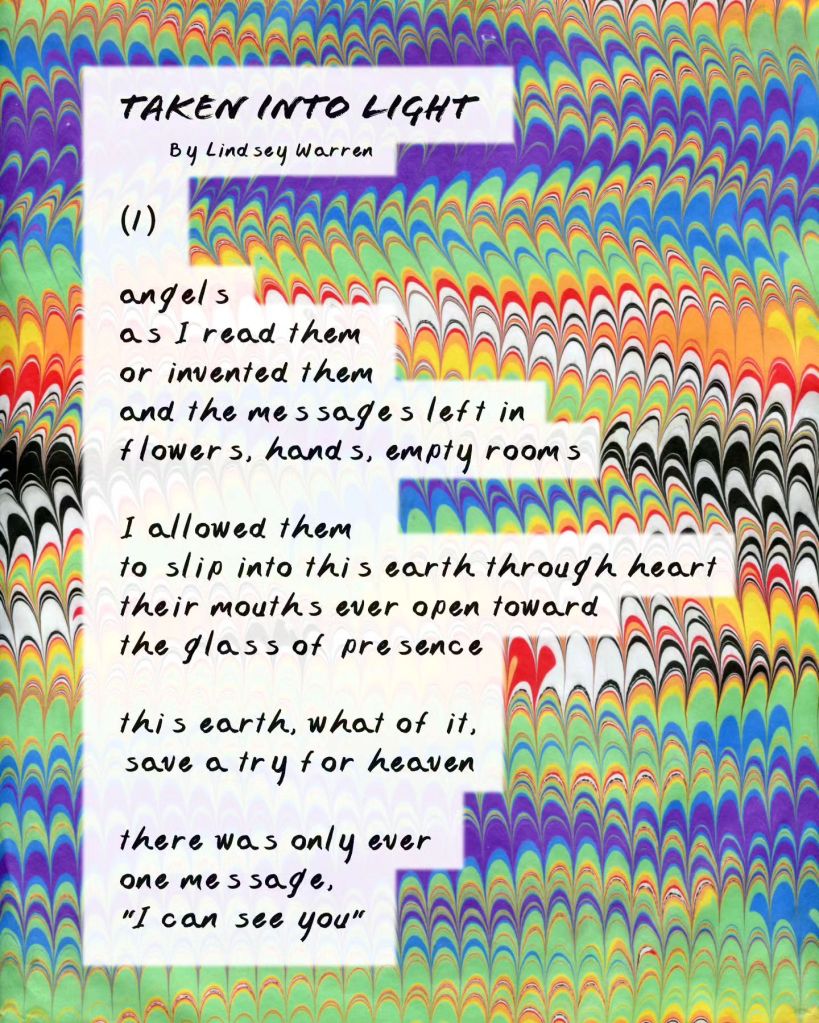 TAKEN INTO LIGHT
By Lindsey Warren
(1)
angels
as I read them
or invented them
and the messages left in
flowers, hands, empty rooms
I allowed them
to slip into this earth through heart
their mouths ever open toward
the glass of presence
this earth, what of it,
save a try for heaven
there was only ever
one message,
"I can see you"